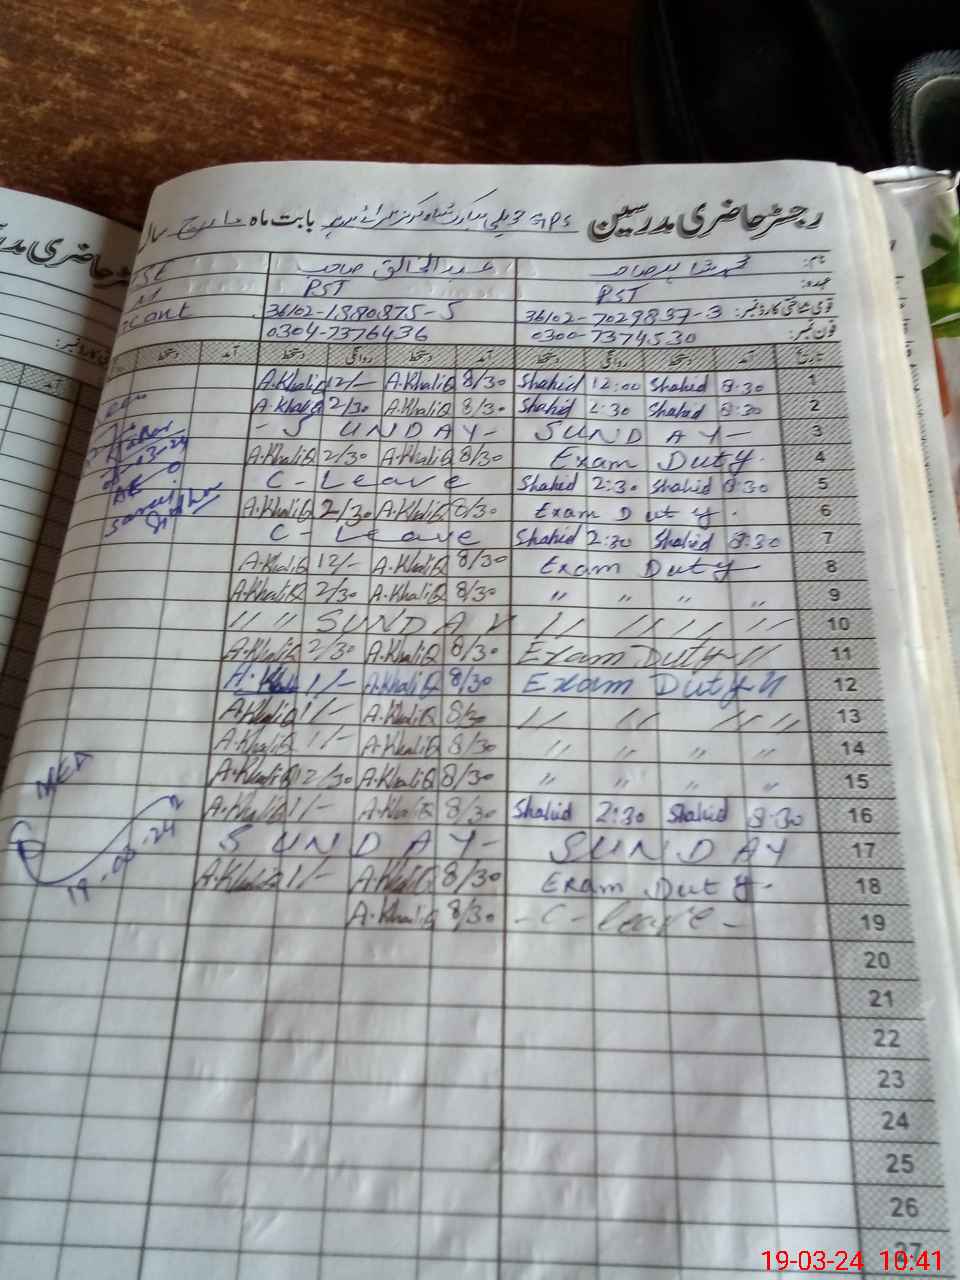 رجسٹر حاضری مدرسین GPS بابت ماہ مارچ سال
نام: محمد شاہد صاحب عبدالخالق صاحب
عہدہ: PST PST
قومی شناختی کارڈ نمبر: 36102-7029837-3 36102-1880875-5
فون نمبر: 0300-7374530 0304-7376436
تاریخ آمد دستخط روانگی دستخط آمد دستخط روانگی دستخط آمد دستخط
1 8:30 Shahid 12:00 Shahid 8/30 A.KhaliQ 12/- A.KhaliQ
2 8:30 Shahid 2:30 Shahid 8/30 A.KhaliQ 2/30 A.KhaliQ
3 SUNDAY- -SUNDAY-
4 Exam Duty. 8/30 A.KhaliQ 2/30 A.KhaliQ
5 8:30 Shahid 2:30 Shahid C-Leave
6 Exam Duty. 8/30 A.KhaliQ 2/30 A.KhaliQ
7 8:30 Shahid 2:30 Shahid C-Leave
8 Exam Duty 8/30 A.KhaliQ 12/- A.KhaliQ
9 " " " " 8/30 A.KhaliQ 2/30 A.KhaliQ
10 // // SUNDAY // // // //
11 Exam Duty // 8/30 A.KhaliQ 2/30 A.KhaliQ
12 Exam Duty 8/30 A.KhaliQ 1/-
13 // // // // 8/30 A.KhaliQ 1/- A.KhaliQ
14 " " " " 8/30 A.KhaliQ 1/- A.KhaliQ
15 " " " " 8/30 A.KhaliQ 12/30 A.KhaliQ
16 8:30 Shahid 2:30 Shahid 8/30 A.KhaliQ 1/- A.KhaliQ
17 SUNDAY SUNDAY-
18 Exam Duty. 8/30 A.KhaliQ 1/- A.KhaliQ
19 -C-leave- 8/30 A.KhaliQ
20
21
22
23
24
25
26
27
19-03-24
19-03-24 10:41